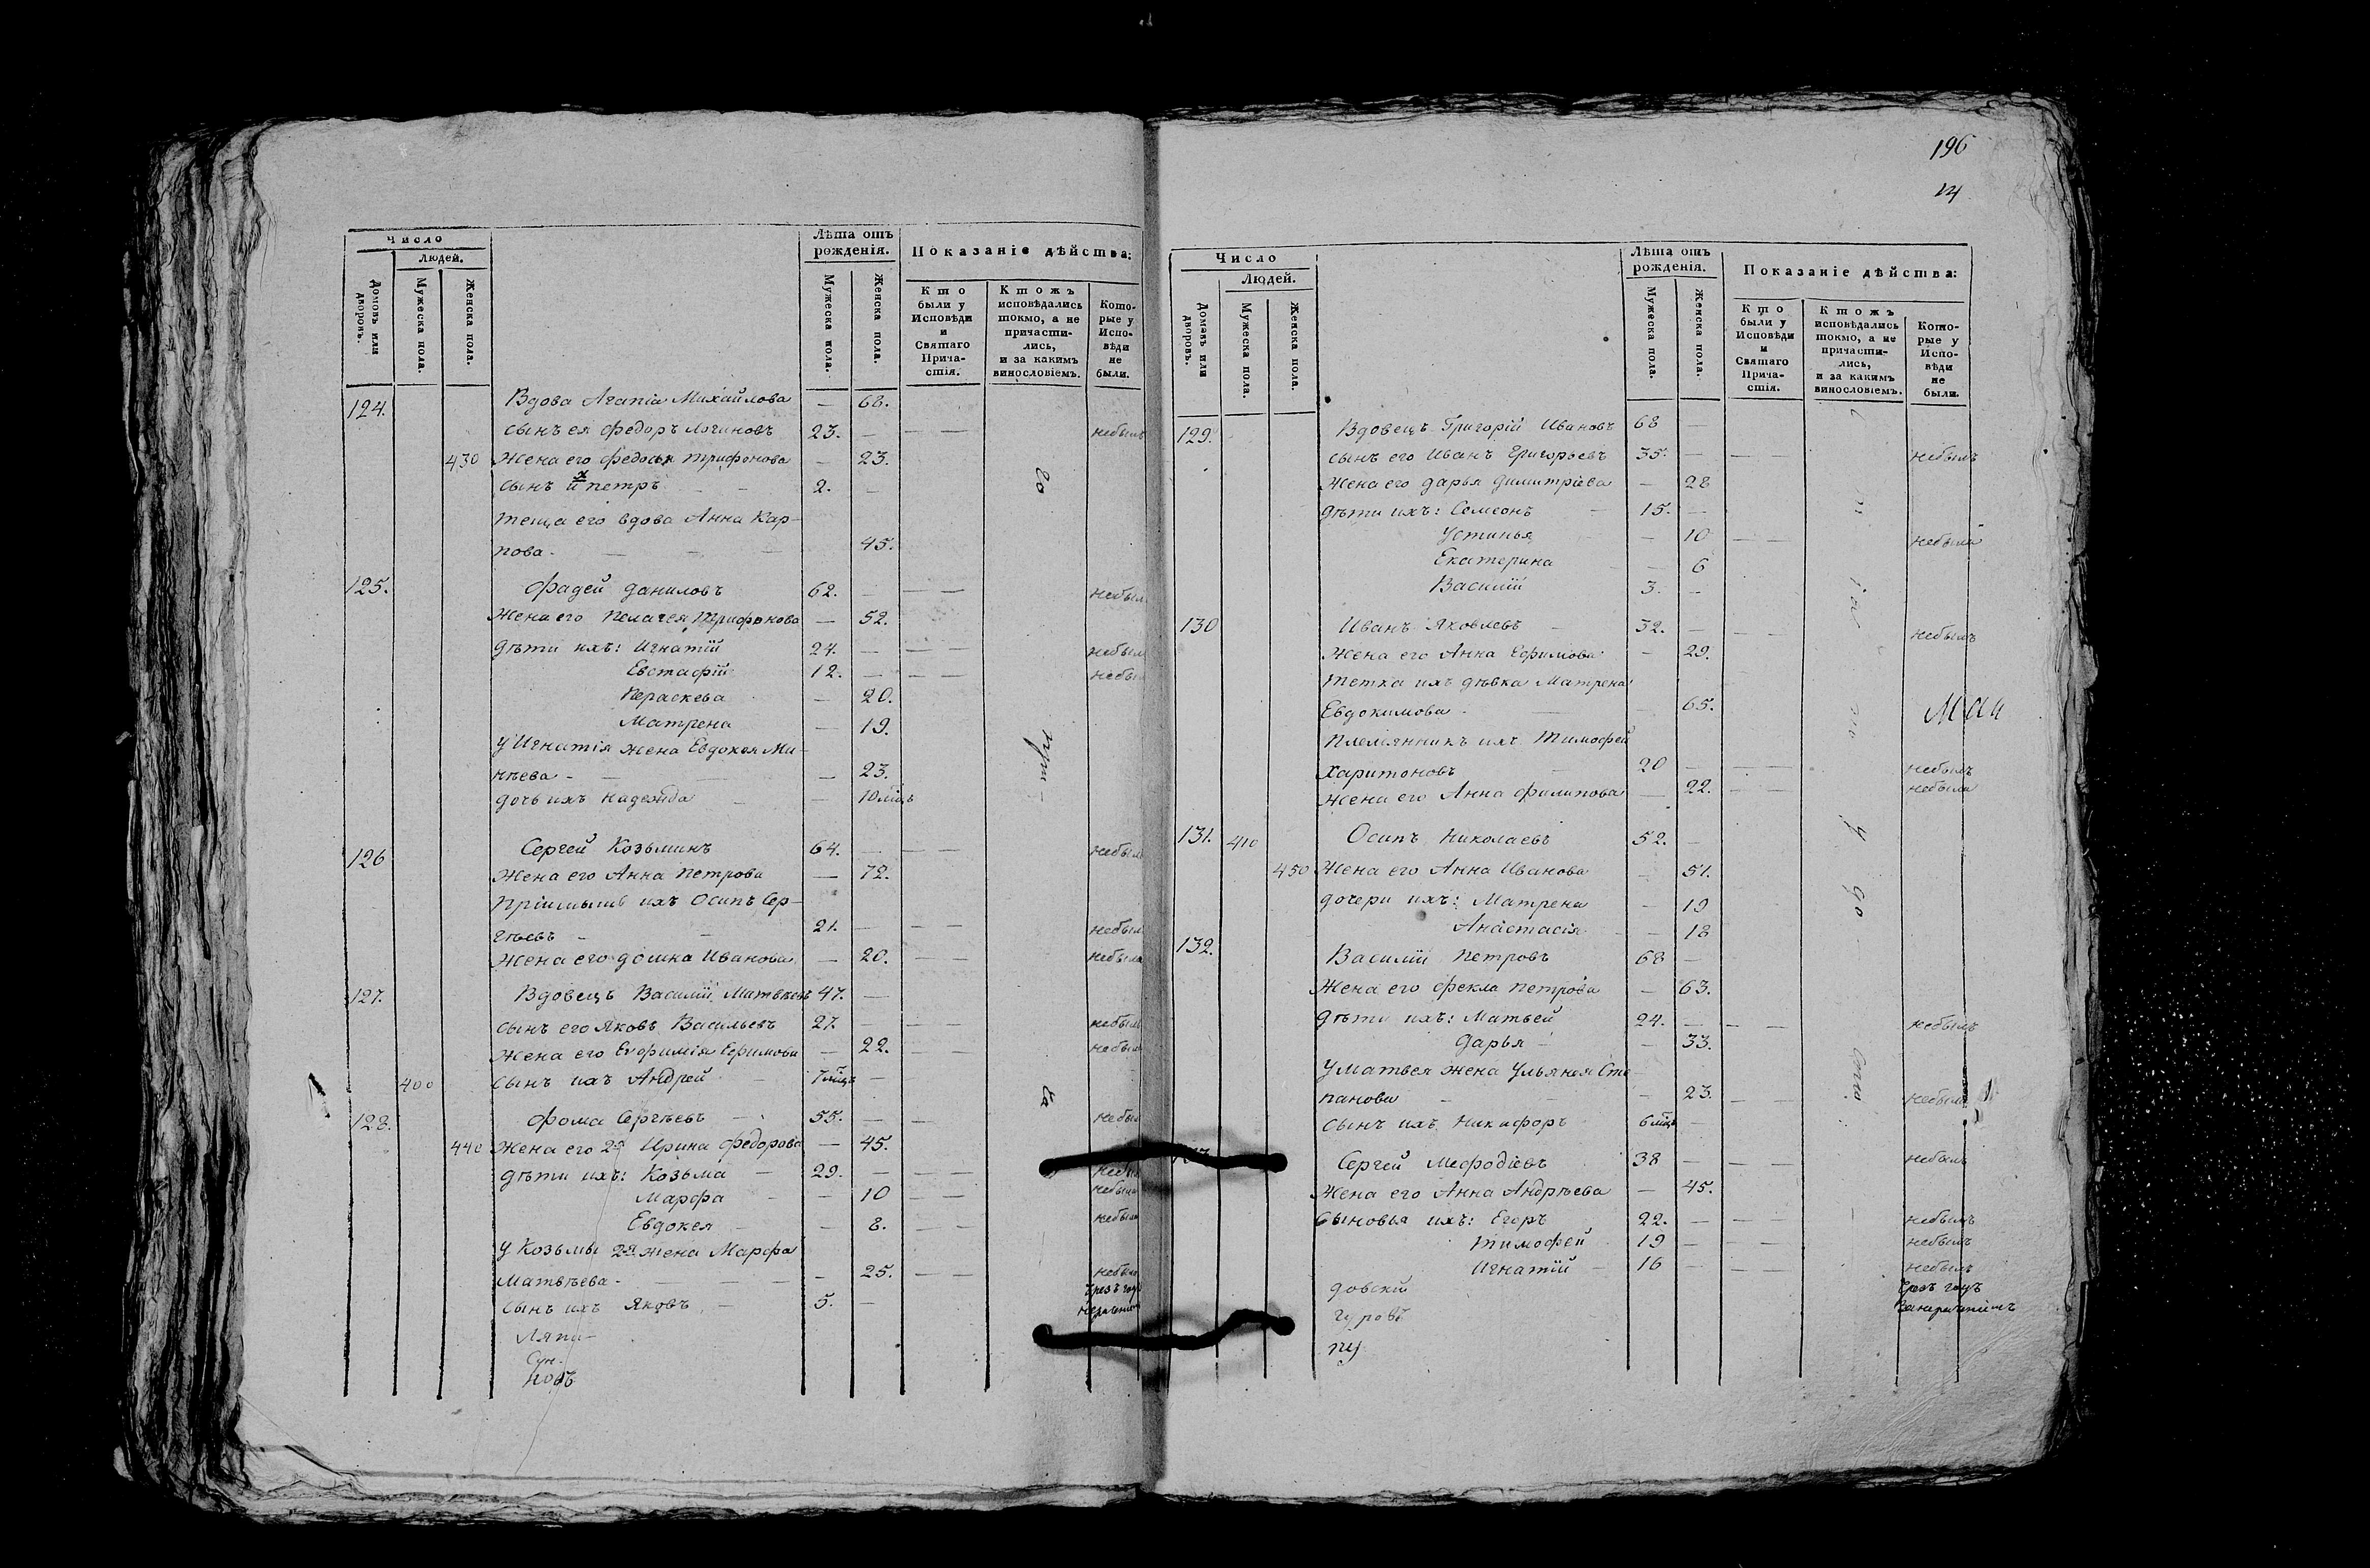 Число
Людей.
Домовъ или дворовъ.
Мужеска пола.
Женска пола.
Лѣта отъ рожденія.
Мужеска пола.
Женска пола.
Показаніе дѣйства:
Кто были у Исповѣди и Святаго Причастія.
Ктожъ исповѣдались токмо, а не причастились, и за какимъ винословіемъ.
Которые у Исповѣди не были.
124. Вдова Агапіа Михайлова — 68.
сынъ ея Федоръ Логиновъ 23. — — — небылъ
430 Жена его Федосья Трифонова — 23.
сынъ их Петръ — — 2. —
теща его вдова Анна Кар-
пова — — — 45.
125. Фадей Даниловъ 62. — — — небыл
Жена его Пелагея Трифонова — 52.
дѣти ихъ: Игнатій 24. — — — небыл
Евстафій 12. — — — небыл
Пераскева — 20.
Матрена — 19.
У Игнатія жена Евдокея Ми-
нѣева — — — 23.
дочь ихъ Надежда — — 10 мцъ
126 Сергей Козьминъ 64. — — — небыл
Жена его Анна Петрова — 72.
Пріимышъ ихъ Осипъ Сер-
гѣевъ — — 21. — — — небыл
Жена его Домна Иванова — 20. — — небыла
127. Вдовецъ Василій Матвѣевъ 47. —
сынъ его Яковъ Васильевъ 27. — — — небылъ
Жена его Евфимія Ефимова — 22. — — небыла
400 сынъ ихъ Андрей — 7 мцъ —
128. Фома Сергѣевъ — 55. — — небыл
440 Жена его 2я Ирина Федорова — 45.
дѣти ихъ: Козьма — 29. — — —
Марфа — — 10 — — небыла
Евдокея — — 8. — — небыла
У Козьмы 2я жена Марфа
Матвѣева — — — — 25. — — небыл
сынъ ихъ Яковъ — 5. —
Ляпу-
новъ
196
14
Число
Людей.
Домовъ или дворовъ.
Мужеска пола.
Женска пола.
Лѣта отъ рожденія.
Мужеска пола.
Женска пола.
Показаніе дѣйства:
Кто были у Исповѣди и Святаго Причастія.
Ктожъ исповѣдались токмо, а не причастились, и за какимъ винословіемъ.
Которые у Исповѣди не были.
129. Вдовецъ Григорій Ивановъ 68 —
сынъ его Иванъ Григорьевъ 35. — — — небылъ
Жена его Дарья Димитріева — 28
дѣти ихъ: Семеонъ — 15. —
Устинья — 10 — — небыла
Екатерина — 6
Василій 3. —
130 Иванъ Яковлевъ — 32. — — — небылъ
Жена его Анна Ефимова — 29.
тетка ихъ дѣвка Матрена
Евдокимова — — 65.
Племянникъ ихъ Тимофей
Харитоновъ — 20 — — — небылъ
Жена его Анна Филипова — 22. — — небыла
131. 410 Осипъ Николаевъ 52. —
450 Жена его Анна Иванова — 51.
дочери ихъ: Матрена — 19
Анастасія — 18
132. Василій Петровъ 68 —
Жена его Фекла Петрова — 63.
дѣти ихъ: Матвей 24. — — — небылъ
Дарья — — 33.
У Матвея жена Ульянея Сте
панова — — — 23. — — небыла
сынъ ихъ Никифоръ 6 мцъ —
Сергей Мефодіевъ 38 — — — небылъ
Жена его Анна Андрѣева — 45.
сыновья ихъ: Егоръ 22. — — — небылъ
Тимофей 19 — — — небылъ
Игнатій — 16 — — — небылъ
довскій
чрезъ годъ